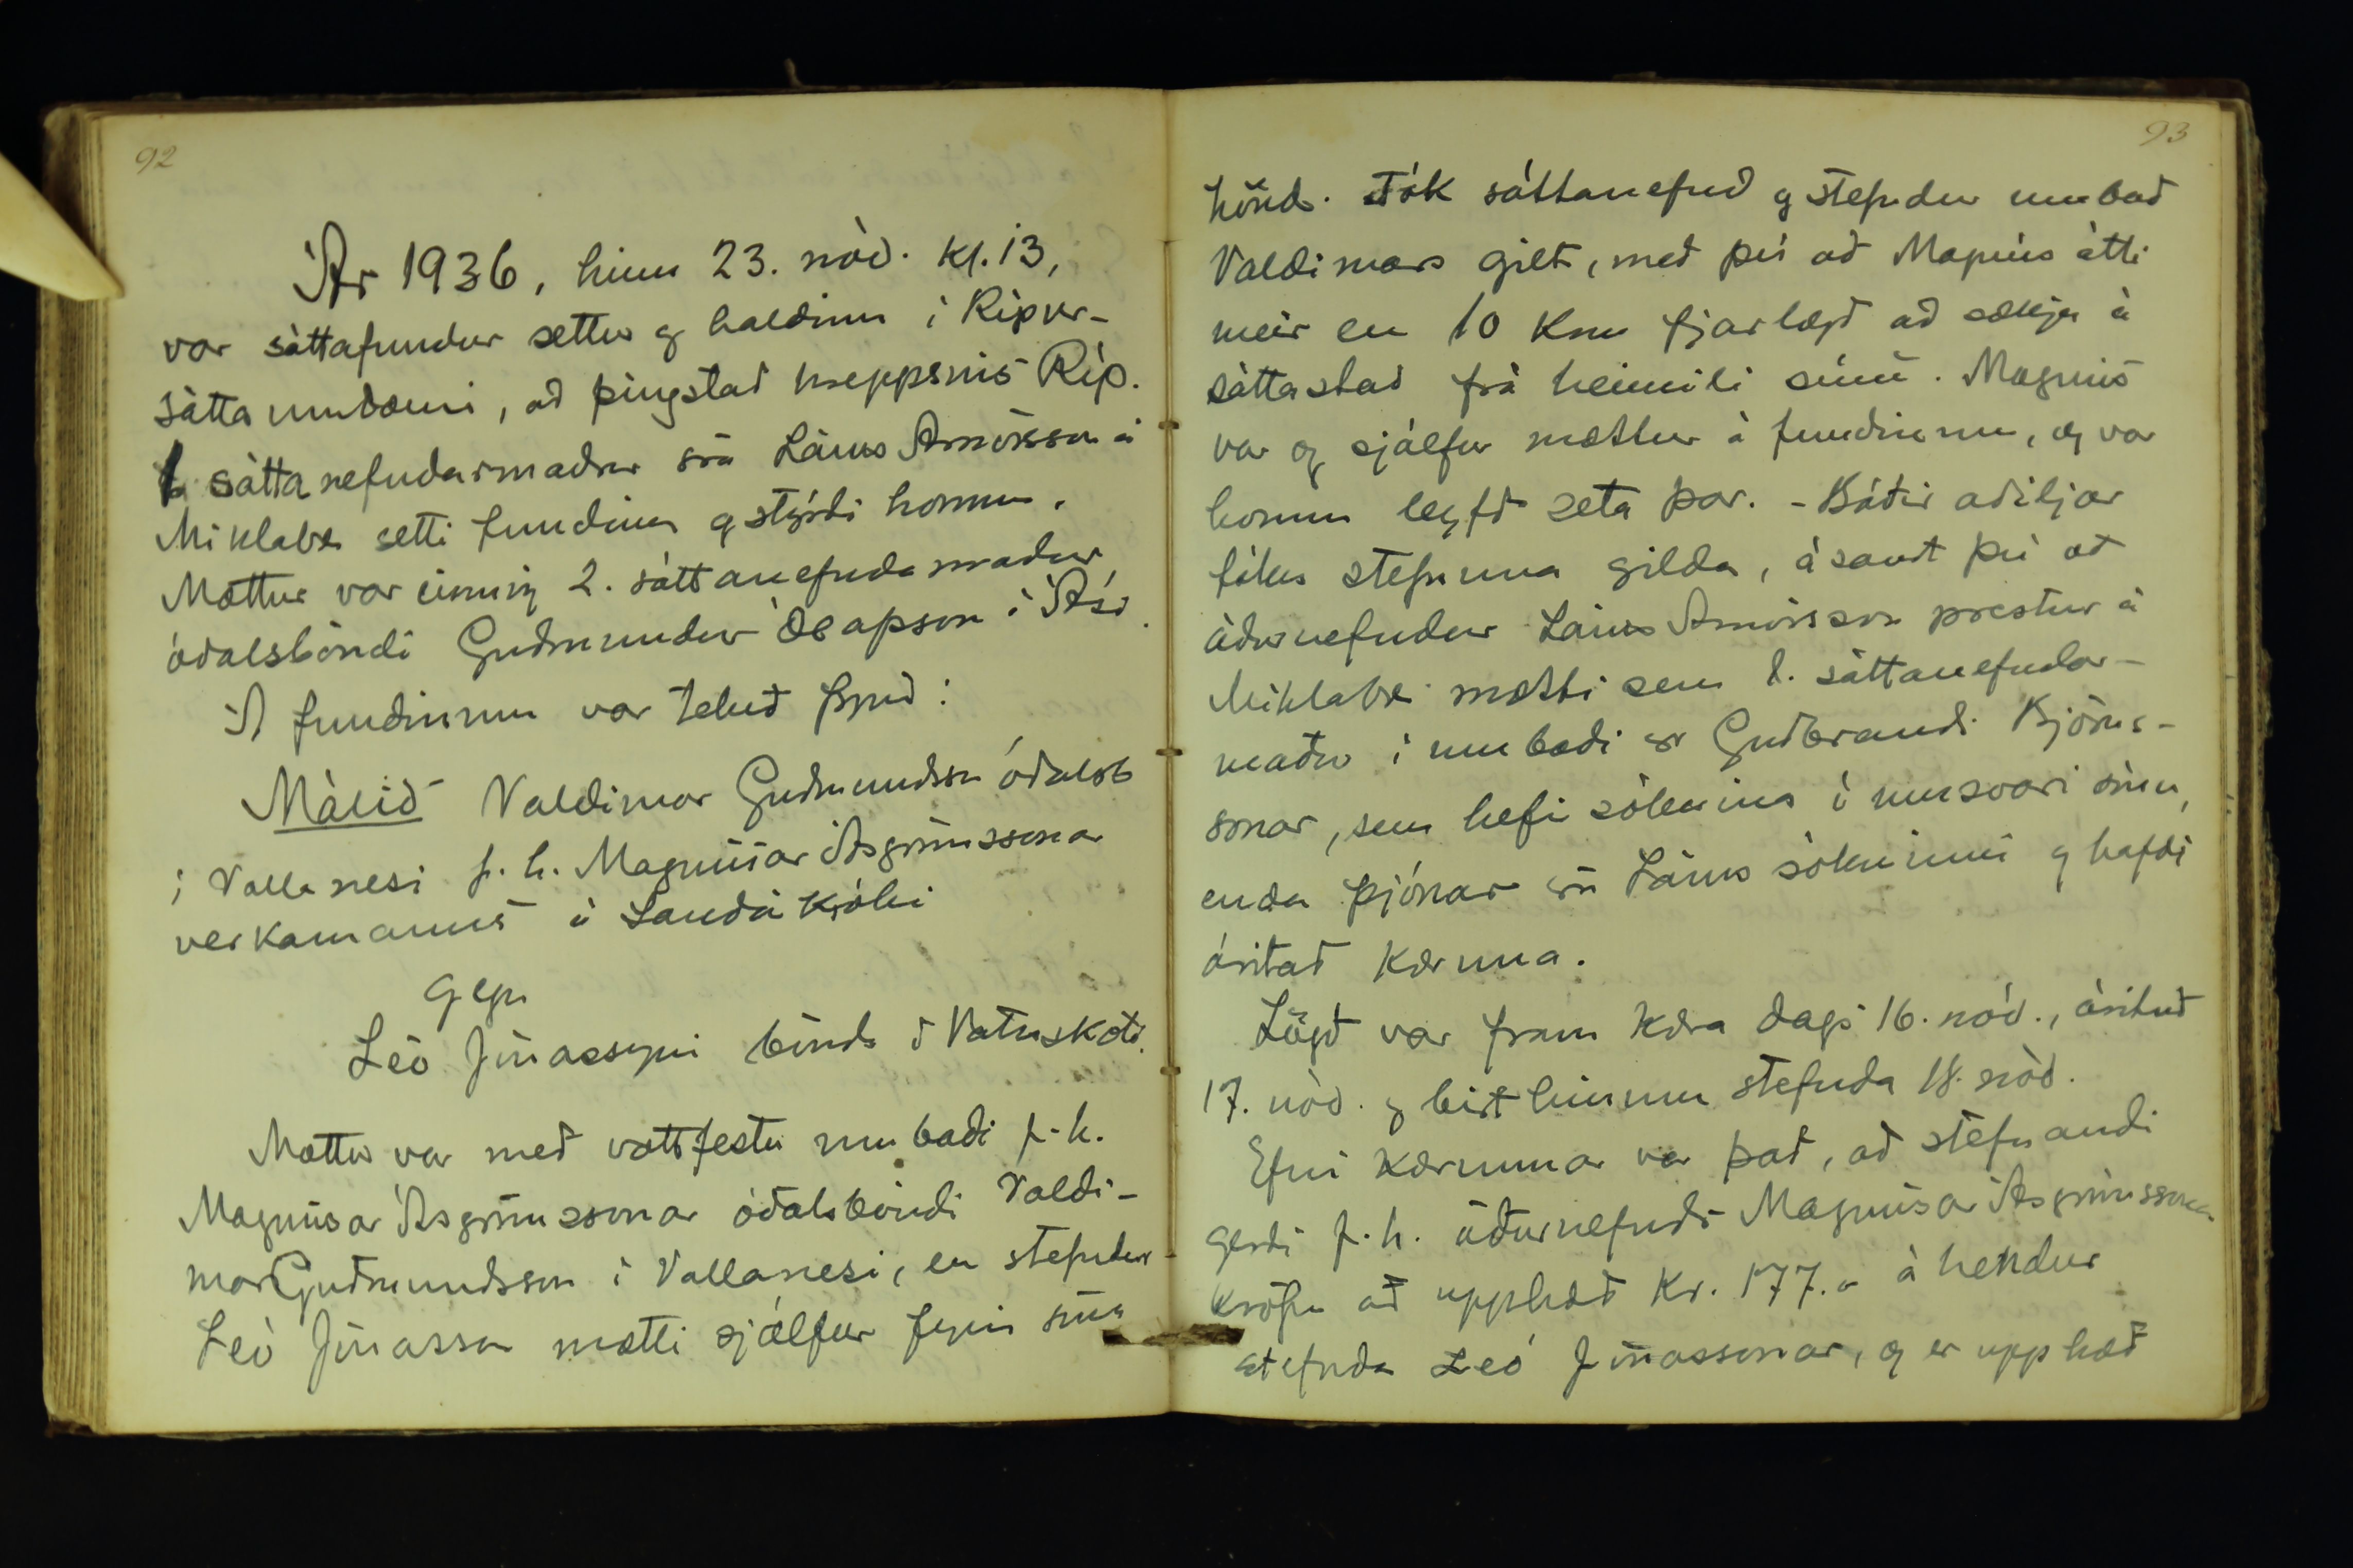 92
Ár 1936, hinn 23. nóv. kl. 13,
var sáttafundur settur og haldinn í Rípur-
sáttaumdæmi, að þingstað hreppsins Ríp.
1. sáttanefndarmaður sra Lárus Arnórsson á
Miklabæ setti fundinn og stýrði honum.
Mættur var einnig 2. sáttanefndamaður
óðalsbóndi Guðmundur Ólafsson í Ási.
Á fundinum var tekið fyrir:
Málið Valdimar Guðmundsson óðalsb
í Vallanesi f. h. Magnúsar Ásgrímssonar
verkamanns á Sauðákróki
gegn
Leó Jónassyni bónda í Vatnskoti.
Mættur var með vottfestu umboði f. h.
Magnúsar Ásgrímssonar óðalsbóndi Valdi-
mar Guðmundsson í Vallanesi, en stefndur
Leó Jónasson mætti sjálfur fyrir sína
93
hönd. Tók sáttanefnd og stefndur umboð
Valdimars gilt, með því að Magnús átti
meir en 10 km fjarlægð að sækja á
sáttastað frá heimili sínu. Magnús
var og sjálfur mættur á fundinum, og var
honum leyfð seta þar. - Báðir aðiljar
tóku stefnuna gilda, ásamt því að
áðurnefndur Lárus Arnórsson prestur á
Miklabæ mætti sem 1. sáttanefndar-
maður í umboði sr Guðbrandi Björns-
sonar, sem hefir sóknina í umsvari sínu,
enda þjónar sra Lárus sókninni og hafði
áritað kæruna.
Lögð var fram kæra dags 16. nóv., árituð
17. nóv. og birt hinum stefnda 18. nóv.
Efni kærunnar var það, að stefnandi
gerði f. h. áðurnefnds Magnúsar Ásgrímssonar
kröfu að upphæð Kr. 177.- á hendur
stefnda Leó Jónassonar, og er upphæð